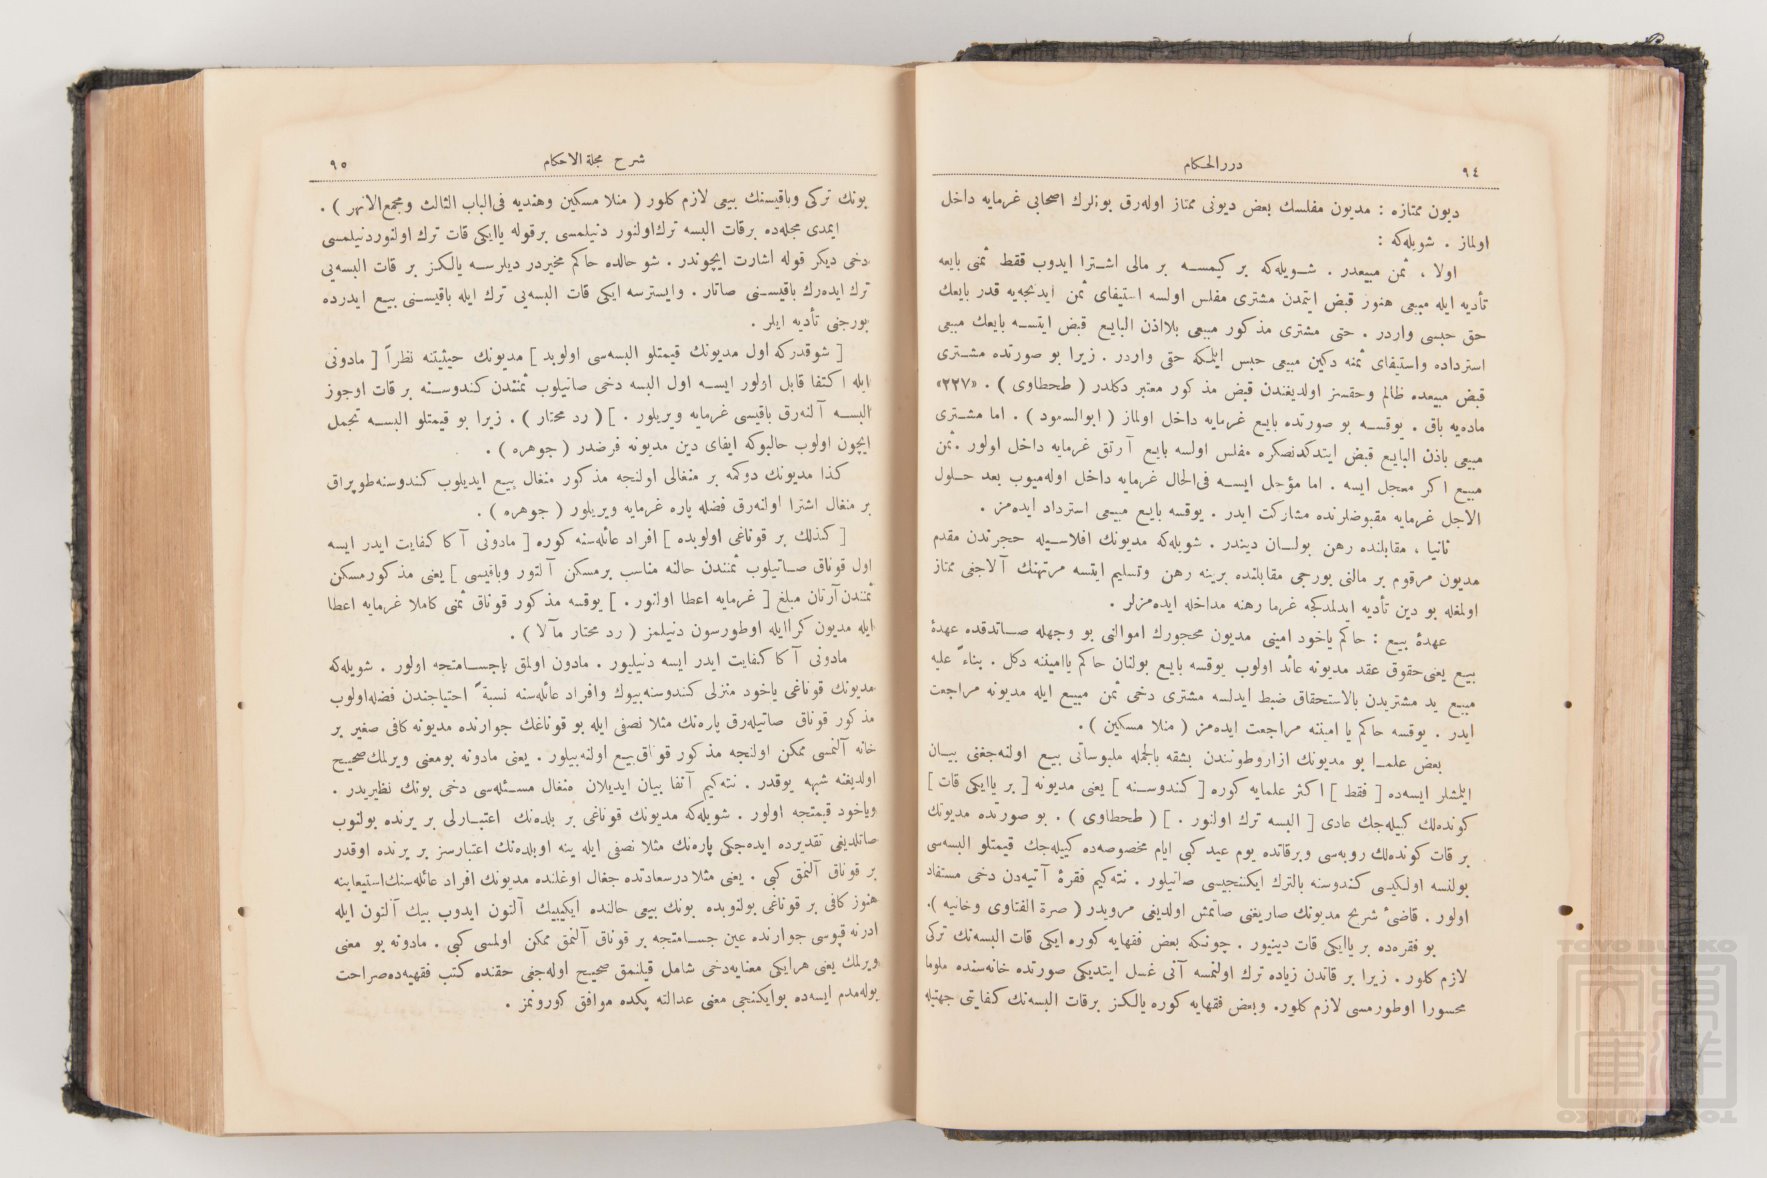 ٩٤
درر الحكام
ديون ممتازه : مديون مفلسك بعض ديونى ممتاز اوله‌رق بونلرك اصحابى غرمايه داخل
اولماز . شويله‌كه :
اولا ، ثمن مبيعدر . شويله‌كه بر كيمسه بر مالى اشترا ايدوب فقط ثمنى بايعه
تأديه ايله مبيعى هنوز قبض ايتمدن مشترى مفلس اولسه استيفاى ثمن ايدنجه‌يه قدر بايعك
حق حبسى واردر . حتى مشترى مذكور مبيعى بلااذن البايع قبض ايتسه بايعك مبيعى
استرداده واستيفاى ثمنه دكين مبيعى حبس ايلمكه حقى واردر . زيرا بو صورتده مشترى
قبض مبيعده ظالم وحقسز اولديغندن قبض مذكور معتبر دكلدر ( طحطاوى ) . «٢٢٧»
ماده‌يه باق . يوقسه بو صورتده بايع غرمايه داخل اولماز ( ابوالسعود ) . اما مشترى
مبيعى باذن البايع قبض ايتدكدنصكره مفلس اولسه بايع آرتق غرمايه داخل اولور . ثمن
مبيع اكر معجل ايسه . اما مؤجل ايسه فى‌الحال غرمايه داخل اوله‌ميوب بعد حلول
الاجل غرمايه مقبوضلرنده مشاركت ايدر . يوقسه بايع مبيعى استرداد ايده‌مز .
ثانيا ، مقابلنده رهن بولنان ديندر . شويله‌كه مديونك افلاسيله حجرندن مقدم
مديون مرقوم بر مالنى بورجى مقابلنده برينه رهن وتسليم ايتسه مرتهنك آلاجغى ممتاز
اولمغله بو دين تأديه ايدلمدكجه غرما رهنه مداخله ايده‌مزلر .
عهدۀ بيع : حاكم ياخود امينى مديون محجورك اموالنى بو وجهله صاتدقده عهدۀ
بيع يعنى حقوق عقد مديونه عائد اولوب يوقسه بايع بولنان حاكم ياامينه دكل . بناءً عليه
مبيع يد مشتريدن بالاستحقاق ضبط ايدلسه مشترى دخى ثمن مبيع ايله مديونه مراجعت
ايدر . يوقسه حاكم يا امينه مراجعت ايده‌مز ( منلا مسكين ) .
بعض علما بو مديونك ازاروطونندن بشقه بالجمله ملبوساتى بيع اولنه‌جغنى بيان
ايلمشلر ايسه‌ده [ فقط ] اكثر علمايه كوره [ كندوسنه ] يعنى مديونه [ بر ياايكى قات ]
كونده‌لك كييله‌جك عادى [ البسه ترك اولنور . ] ( طحطاوى ) . بو صورتده مديونك
بر قات كونده‌لك روبه‌سى وبرقاتده يوم عيد كبى ايام مخصوصه‌ده كييله‌جك قيمتلو البسه‌سى
بولنسه اولكيسى كندوسنه بالترك ايكنجيسى صاتيلور . نته‌كيم فقرۀ آتيه‌دن دخى مستفاد
اولور . قاضئ شريح مديونك صاريغنى صاتمش اولديغى مرويدر ( صرة الفتاوى وخانيه ) .
بو فقره‌ده بر ياايكى قات دينيور . چونكه بعض فقهايه كوره ايكى قات البسه‌نك تركى
لازم كلور . زيرا بر قاتدن زياده ترك اولنمسه آنى غسل ايتديكى صورتده خانه‌سنده ملوما
محسورا اوطورمسى لازم كلور . وبعض فقهايه كوره يالكز برقات البسه‌نك كفايتى جهتيله
شرح مجلة الاحكام
٩٥
بونك تركى وباقيسنك بيعى لازم كلور ( منلا مسكين وهنديه فى‌الباب الثالث ومجمع‌الانهر ) .
ايمدى مجله‌ده برقات البسه ترك‌اولنور دنيلمسى برقوله ياايكى قات ترك اولنوردنيلمسى
دخى ديكر قوله اشارت ايچوندر . شو حالده حاكم مخيردر ديلرسه يالكز بر قات البسه‌يى
ترك ايده‌رك باقيسنى صاتار . وايسترسه ايكى قات البسه‌يى ترك ايله باقيسنى بيع ايدرده
بورجنى تأديه ايلر .
[ شوقدركه اول مديونك قيمتلو البسه‌سى اولوبد ] مديونك حيثيتنه نظراً [ مادونى
ايله اكتفا قابل اولور ايسه اول البسه دخى صاتيلوب ثمنندن كندوسنه بر قات اوجوز
البسه آلنه‌رق باقيسى غرمايه ويريلور . ] ( رد محتار ) . زيرا بو قيمتلو البسه تجمل
ايچون اولوب حالبوكه ايفاى دين مديونه فرضدر ( جوهره ) .
كذا مديونك دوكمه بر منغالى اولنجه مذكور منغال بيع ايديلوب كندوسنه‌طوپراق
بر منغال اشترا اولنه‌رق فضله پاره غرمايه ويريلور ( جوهره ) .
[ كذلك بر قوناغى اولوبده ] افراد عائله‌سنه كوره [ مادونى آكا كفايت ايدر ايسه
اول قوناق صاتيلوب ثمنندن حالنه مناسب برمسكن آلنور وباقيسى ] يعنى مذكورمسكن
ثمنندن‌آرتان مبلغ [ غرمايه اعطا اولنور . ] يوقسه مذكور قوناق ثمنى كاملا غرمايه اعطا
ايله مديون كراايله اوطورسون دنيلمز ( رد محتار مآلا ) .
مادونى آكا كفايت ايدر ايسه دنيليور . مادون اولمق ياجسامتجه اولور . شويله‌كه
مديونك قوناغى ياخود منزلى كندوسنه‌بيوك وافراد عائله‌سنه نسبةً احتياجندن فضله‌اولوب
مذكور قوناق صاتيله‌رق پاره‌نك مثلا نصفى ايله بو قوناغك جوارنده مديونه كافى صغير بر
خانه آلنمسى ممكن اولنجه مذكور قوناق‌بيع اولنه‌بيلور . يعنى مادونه بومعنى ويرلمك‌صحيح
اولديغنه شبهه يوقدر . نته‌كيم آنفا بيان ايديلان منغال مسئله‌سى دخى بونك نظيريدر .
وياخود قيمتجه اولور . شويله‌كه مديونك قوناغى بر بلده‌نك اعتبارلى بر يرنده بولنوب
صاتلديغى تقديرده ايده‌جكى پاره‌نك مثلا نصفى ايله ينه اوبلده‌نك اعتبارسز بر يرنده اوقدر
بر قوناق آلنمق كبى . يعنى مثلا درسعادتده جغال اوغلنده مديونك افراد عائله‌سنك‌استيعابنه
هنوز كافى بر قوناغى بولنوبده بونك بيعى حالنده ايكيبيك آلتون ايدوب بيك آلتون ايله
ادرنه قپوسى جوارنده عين جسامتجه بر قوناق آلنمق ممكن اولمسى كبى . مادونه بو معنى
ويرلمك يعنى هرايكى معنايه‌دخى شامل قيلنمق صحيح اوله‌جغى حقنده كتب فقهيه‌ده‌صراحت
بوله‌مدم ايسه‌ده بوايكنجى معنى عدالته پكده موافق كورونمز .
TOYO BUNKO